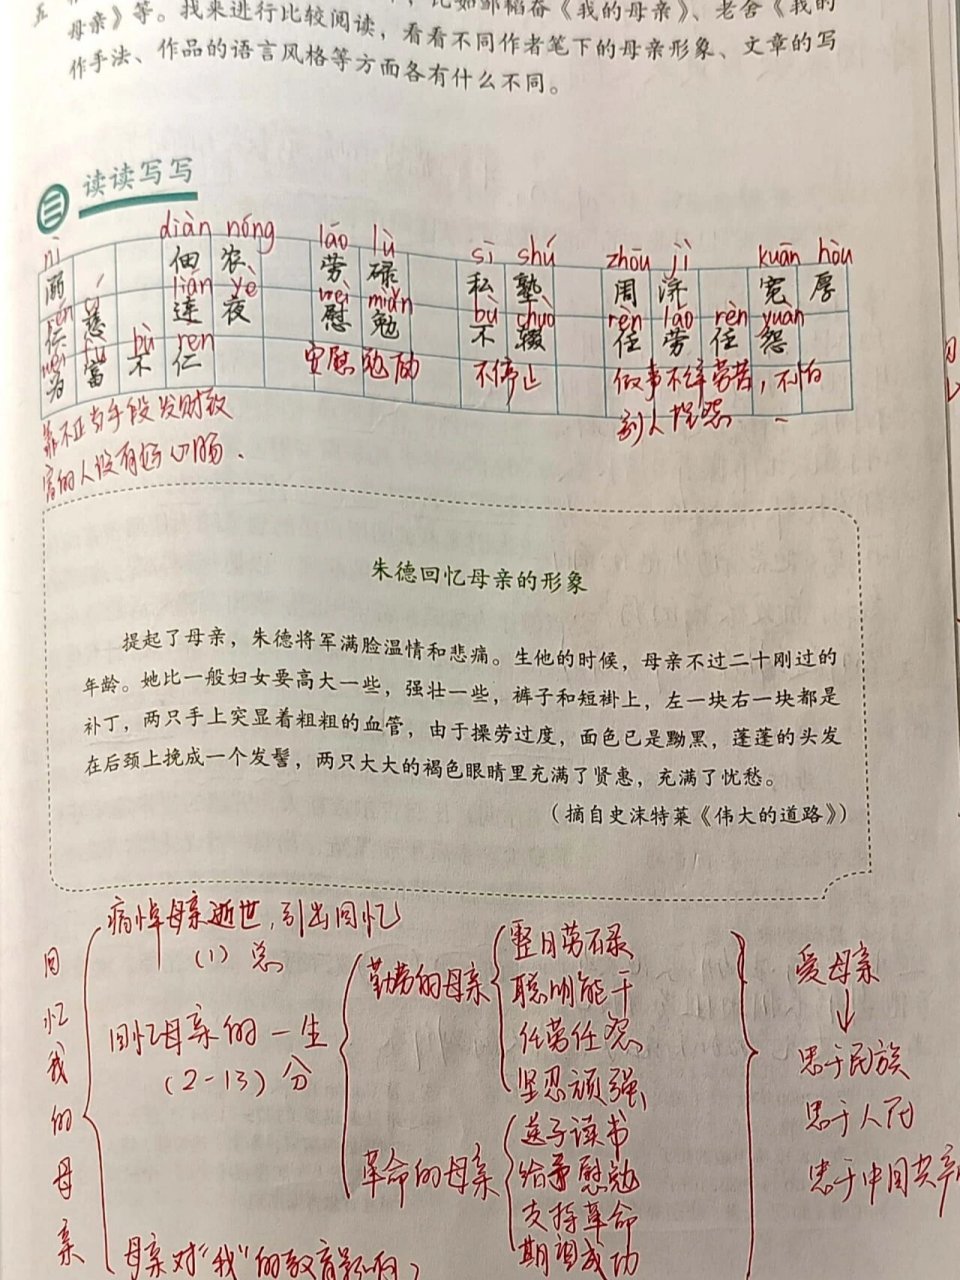 比如邹韬奋《我的母亲》、老舍《我的
母亲》等。找来进行比较阅读，看看不同作者笔下的母亲形象、文章的写
作手法、作品的语言风格等方面各有什么不同。
三 读读写写
nì diàn nóng láo lù sī shú zhōu jì kuān hòu
溺 佃农 劳碌 私塾 周济 宽厚
rén cí lián yè wèi miǎn bù chuò rèn láo rèn yuàn
仁慈 连夜 慰勉 不辍 任劳任怨
wéi fù bù rén 安慰勉励 不停止 做事不辞劳苦，不怕
为富不仁
别人埋怨
靠不正当手段发财致
富的人没有好心肠.
朱德回忆母亲的形象
提起了母亲，朱德将军满脸温情和悲痛。生他的时候，母亲不过二十刚过的
年龄。她比一般妇女要高大一些，强壮一些，裤子和短褂上，左一块右一块都是
补丁，两只手上突显着粗粗的血管，由于操劳过度，面色已是黝黑，蓬蓬的头发
在后颈上挽成一个发髻，两只大大的褐色眼睛里充满了贤惠，充满了忧愁。
（摘自史沫特莱《伟大的道路》）
回忆我的母亲
痛悼母亲逝世，引出回忆
(1) 总
回忆母亲的一生
(2-13) 分
勤劳的母亲
整日劳碌
聪明能干
任劳任怨
坚忍顽强
革命的母亲
送子读书
给予慰勉
支持革命
期望成功
母亲对"我"的教育影响
爱母亲
↓
忠于民族
忠于人民
忠于中国共产